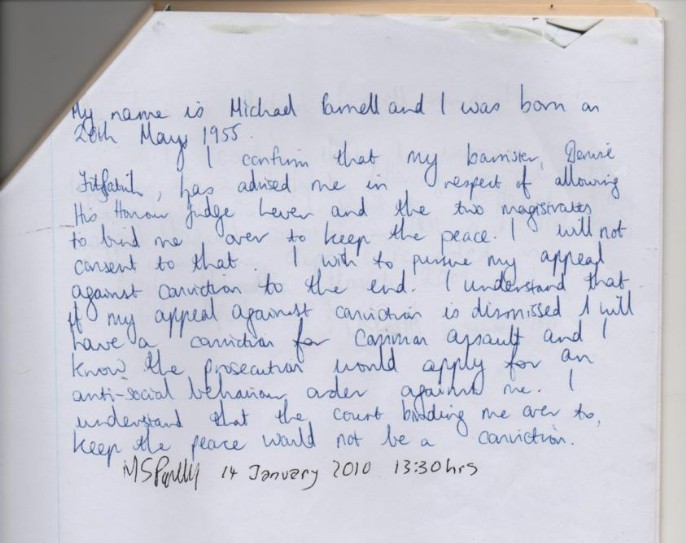 My name is Michael Parnell and I was born on
20th May 1955.
I confirm that my barrister, Denise
Fitzpatrick, has advised me in respect of allowing
His Honour Judge Lever and the two magistrates
to bind me over to keep the peace. I will not
consent to that. I wish to pursue my appeal
against conviction to the end. I understand that
if my appeal against conviction is dismissed I will
have a conviction for Common assault and I
know the prosecution would apply for an
anti-social behaviour order against me. I
understand that the court binding me over to
keep the peace would not be a conviction.
14 January 2010 13:30hrs